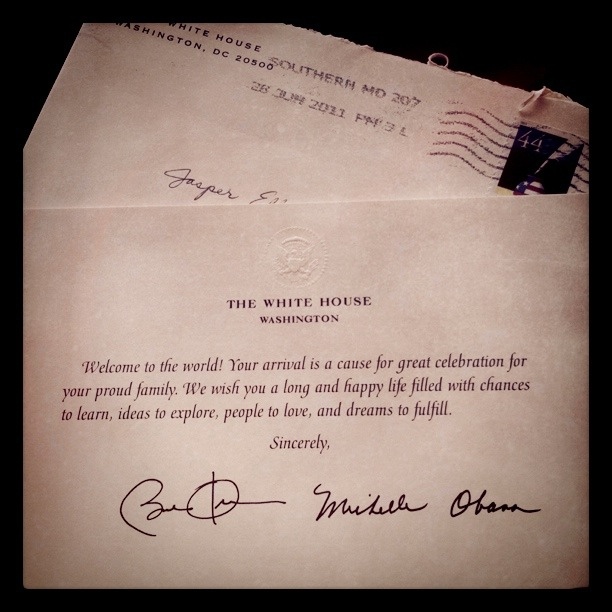 THE WHITE HOUSE
WASHINGTON, DC 20500
SOUTHERN MD 207
28 JUN 2011 PM 2 L
44
Jasper
THE WHITE HOUSE
WASHINGTON
Welcome to the world! Your arrival is a cause for great celebration for
your proud family. We wish you a long and happy life filled with chances
to learn, ideas to explore, people to love, and dreams to fulfill.
Sincerely,
Michelle Obama